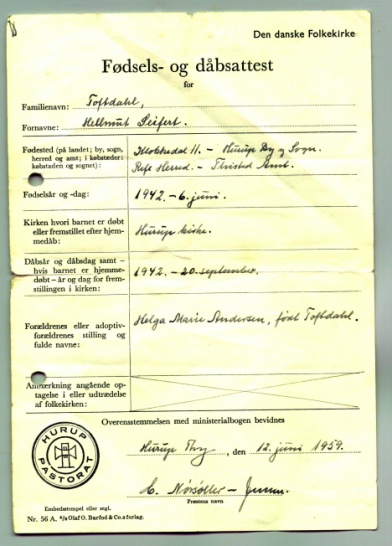 Den danske Folkekirke
Fødsels- og dåbsattest
for
Familienavn: Toftdahl,
Fornavne: Hellmut Seifert.
Fødested (på landet; by, sogn, herred og amt; i købsteder: købstaden og sognet): 11. - Hurup By og Sogn.
Refs Herred. - Thisted Amt.
Fødselsår og -dag: 1942. - 6. juni.
Kirken hvori barnet er døbt eller fremstillet efter hjemmedåb: Hurup kirke.
Dåbsår og dåbsdag samt - hvis barnet er hjemmedøbt - år og dag for fremstillingen i kirken: 1942. - 20. september.
Forældrenes eller adoptivforældrenes stilling og fulde navne: Helga Marie Andersen, født Toftdahl.
Anmærkning angående optagelse i eller udtrædelse af folkekirken:
Overensstemmelsen med ministerialbogen bevidnes
Hurup Thy, den 12. juni 1959.
Præstens navn
HURUP PASTORAT
Embedsstempel eller segl.
Nr. 56 A. A/s Olaf O. Barfod & Co.s forlag.